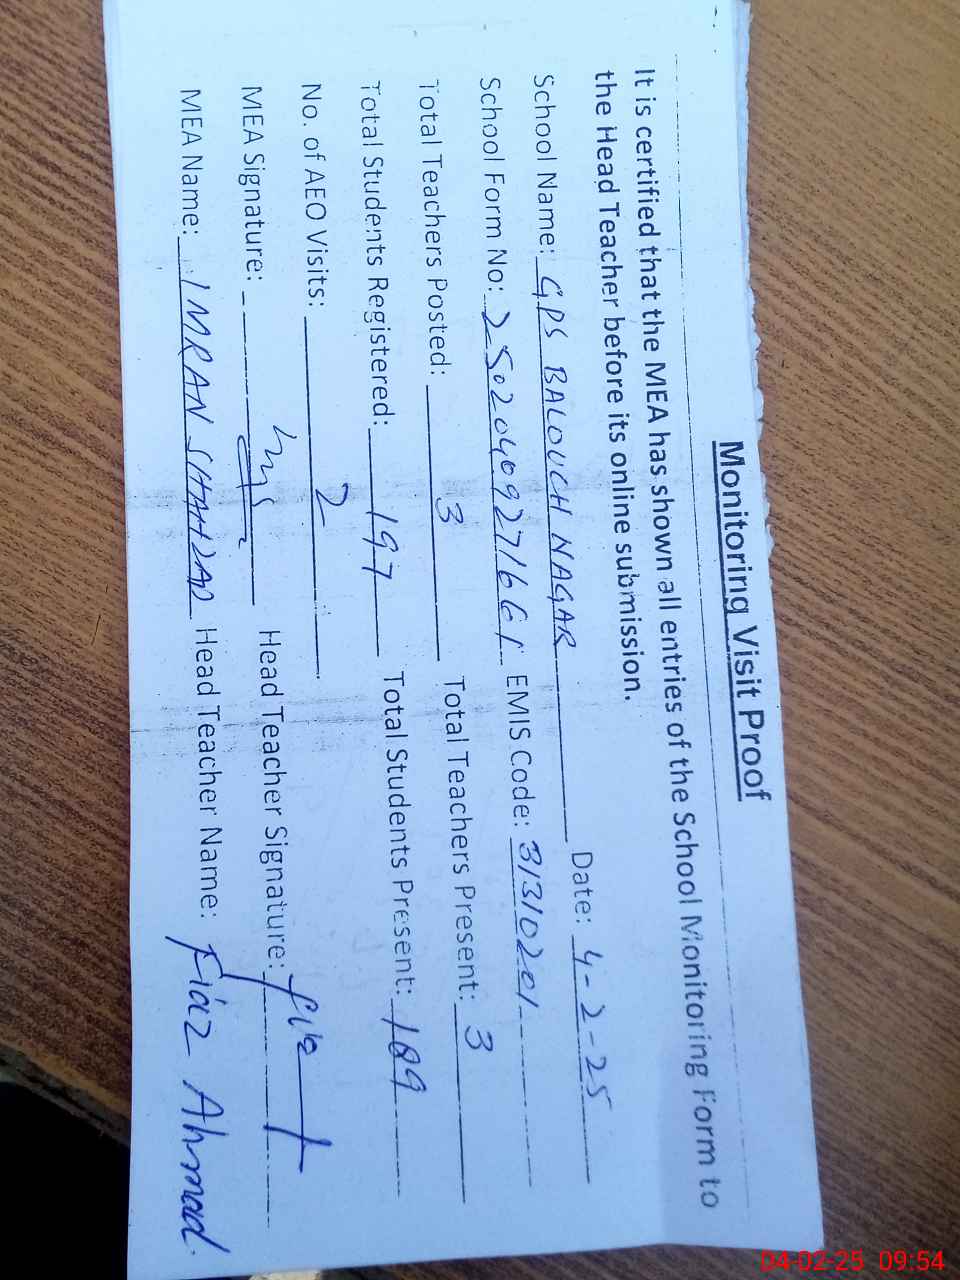 Monitoring Visit Proof
It is certified that the MEA has shown all entries of the School Monitoring Form to
the Head Teacher before its online submission.
School Name: GPS BALOUCH NAGAR Date: 4-2-25
School Form No: 25020409271661 EMIS Code: 31310201
Total Teachers Posted: 3 Total Teachers Present: 3
Total Students Registered: 197 Total Students Present: 189
No. of AEO Visits: 2
MEA Signature: Head Teacher Signature:
MEA Name: IMRAN SHAHZAD Head Teacher Name: Fiaz Ahmad.
04-02-25 09:54